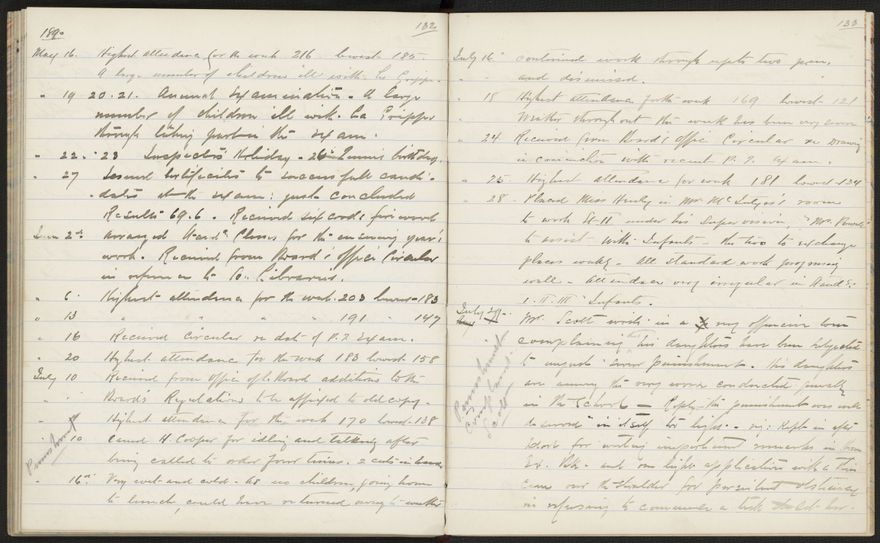 1890
132
May 16. Highest attendance for the week 216 lowest 185.
A large number of children ill with La Grippe.
" 19 20. 21. Annual Examination. A large
number of children ill with La Grippe
through taking part in the Exam.
" 22. " 23 Inspectors Holiday - 26th Queen's birthday.
" 27 Issued Certificates to successful candi-
dates at the Exam: just concluded
Results 69.6. Received six cords firewood
June 2nd Arranged Classes for the ensuing year's
work. Received from Board's office Circular
in reference to Libraries.
" 6. Highest attendance for the week. 203 lowest 183
" 13 " " " 191 " 147
" 16 Received Circular re date of P. T. Exam.
" 20 Highest attendance for the week 183 lowest 158
July 10 Received from Office of the Board additions to the
Board's Regulations to be affixed to old copy.
" Highest attendance for the week 170 lowest 138
Punishment
" 10 caned H. Cooper for idling and talking after
being called to order four times. 2 cuts in hand
" 16th Very wet and cold. As no children, going home
to lunch, could have returned owing to weather
133
July 16 continued work through up to two p.m.
" and dismissed.
" 18 Highest attendance for the week 169 lowest 121
Weather throughout the week has been very severe
" 24 Received from Board's Office Circular re Drawing
in conjunction with recent P. T. Exam.
" 25. Highest attendance for week 181 lowest 134
" 28. Placed Miss in Mr. room
to work St II under his supervision, Mr.
to assist with Infants - the two to exchange
places weekly - All standard work progressing
well. Attendance very irregular in Stand:
I. II. III Infants.
July 29.
Mr. Scott writes in a very offensive tone
complaining his daughters have been subjected
to unjust severe punishment. His daughters
are among the very worse conducted girls
in the School - Reply: the punishment was well
deserved in itself too light. viz: Kept in after
school for writing impertinent remarks in
Ex. Bk. and one light application with a thin
cane over the shoulder for persistent obstinacy
in refusing to commence a task
Punishment
Complaint
Scott